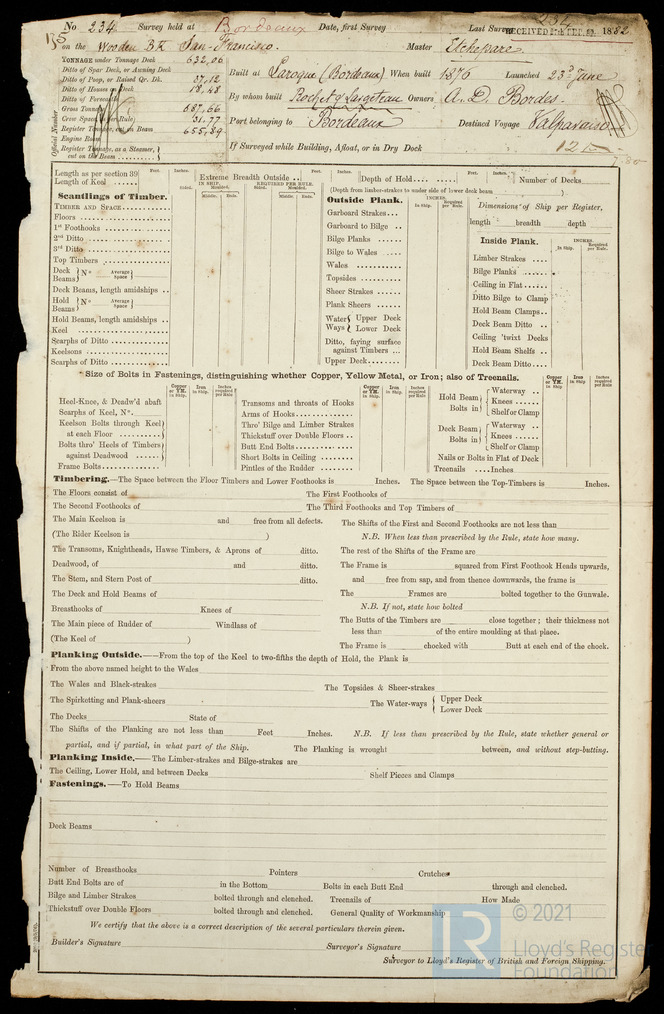 No. 234 Survey held at Bordeaux Date, first Survey Last Survey 1882
234
RECEIVED
on the Wooden Bk San-Francisco. Master Etchepare
TONNAGE under Tonnage Deck 632,06
Ditto of Spar Deck, or Awning Deck
Ditto of Poop, or Raised Qr. Dk. 37,12
Ditto of Houses on Deck 18,48
Ditto of Forecastle
Gross Tonnage 687,66
Crew Space (per Rule) 31.77
Register Tonnage, as on Beam 655,89
Engine Room
Register Tonnage, as a Steamer, cut on the Beam
Official Number
Built at Laroque (Bordeaux) When built 1876 Launched 23d June
By whom built Rochet & Largeteau Owners A. D. Bordes.
Port belonging to Bordeaux Destined Voyage Valparaiso
If Surveyed while Building, Afloat, or in Dry Dock
Length as per section 39 Feet. Inches.
Length of Keel
Extreme Breadth Outside Feet. Inches.
Depth of Hold Feet. Inches.
(Depth from limber-strakes to under side of lower deck beam )
Number of Decks
Scantlings of Timber.
IN SHIP. REQUIRED PER RULE.
Sided. Moulded. Middle. Ends.
TIMBER AND SPACE
Floors
1st Foothooks
2nd Ditto
3rd Ditto
Top Timbers
Deck Beams } No Average Space
Deck Beams, length amidships
Hold Beams } No Average Space
Hold Beams, length amidships
Keel
Scarphs of Ditto
Keelsons
Scarphs of Ditto
Outside Plank.
INCHES. In Ship. Required per Rule.
Garboard Strakes
Garboard to Bilge
Bilge Planks
Bilge to Wales
Wales
Topsides
Sheer Strakes
Plank Sheers
Water Ways { Upper Deck
Lower Deck
Ditto, faying surface against Timbers
Upper Deck
Dimensions of Ship per Register,
length breadth depth
Inside Plank.
INCHES. In Ship. Required per Rule.
Limber Strakes
Bilge Planks
Ceiling in Flat
Ditto Bilge to Clamp
Hold Beam Clamps
Deck Beam Ditto
Ceiling 'twixt Decks
Hold Beam Shelfs
Deck Beam Ditto
Size of Bolts in Fastenings, distinguishing whether Copper, Yellow Metal, or Iron; also of Treenails.
Copper or YM. in Ship. Iron in Ship. Inches required per Rule.
Heel-Knee, & Deadw'd abaft
Scarphs of Keel, No.
Keelson Bolts through Keel at each Floor
Bolts thro' Heels of Timbers against Deadwood
Frame Bolts
Transoms and throats of Hooks
Arms of Hooks
Thro' Bilge and Limber Strakes
Thickstuff over Double Floors
Butt End Bolts
Short Bolts in Ceiling
Pintles of the Rudder
Hold Beam Bolts in { Waterway
Knees
Shelf or Clamp
Deck Beam Bolts in { Waterway
Knees
Shelf or Clamp
Nails or Bolts in Flat of Deck
Treenails Inches
Timbering.—The Space between the Floor Timbers and Lower Foothooks is Inches. The Space between the Top-Timbers is Inches.
The Floors consist of The First Foothooks of
The Second Foothooks of The Third Foothooks and Top Timbers of
The Main Keelson is and free from all defects. The Shifts of the First and Second Foothooks are not less than
(The Rider Keelson is ) N.B. When less than prescribed by the Rule, state how many.
The Transoms, Knightheads, Hawse Timbers, & Aprons of ditto. The rest of the Shifts of the Frame are
Deadwood, of and ditto. The Frame is squared from First Foothook Heads upwards,
The Stem, and Stern Post of ditto. and free from sap, and from thence downwards, the frame is
The Deck and Hold Beams of The Frames are bolted together to the Gunwale.
Breasthooks of Knees of N.B. If not, state how bolted
The Main piece of Rudder of Windlass of The Butts of the Timbers are close together; their thickness not less than of the entire moulding at that place.
(The Keel of ) The Frame is chocked with Butt at each end of the chock.
Planking Outside.—From the top of the Keel to two-fifths the depth of Hold, the Plank is
From the above named height to the Wales
The Wales and Black-strakes The Topsides & Sheer-strakes
The Spirketting and Plank-sheers The Water-ways { Upper Deck
Lower Deck
The Decks State of
The Shifts of the Planking are not less than Feet Inches. N.B. If less than prescribed by the Rule, state whether general or partial, and if partial, in what part of the Ship. The Planking is wrought between, and without step-butting.
Planking Inside.—The Limber-strakes and Bilge-strakes are
The Ceiling, Lower Hold, and between Decks Shelf Pieces and Clamps
Fastenings.—To Hold Beams
Deck Beams
Number of Breasthooks Pointers Crutches
Butt End Bolts are of in the Bottom Bolts in each Butt End through and clenched.
Bilge and Limber Strakes bolted through and clenched. Treenails of How Made
Thickstuff over Double Floors bolted through and clenched. General Quality of Workmanship
We certify that the above is a correct description of the several particulars therein given.
Builder's Signature Surveyor's Signature
Surveyor to Lloyd's Register of British and Foreign Shipping.
LR
© 2021
Lloyd's Register
Foundation